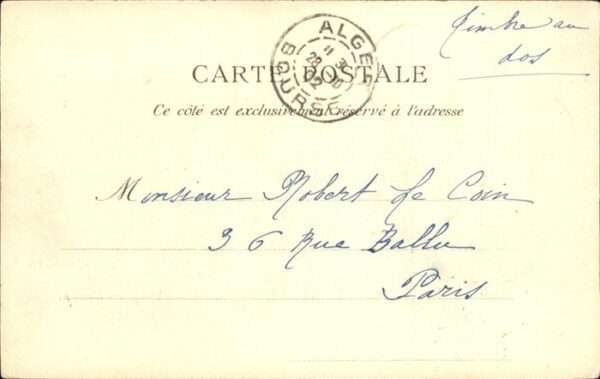 Timbre au
dos
ALGER
11 30
28 10
02
BOURSE
CARTE POSTALE
Ce côté est exclusivement réservé à l'adresse
Monsieur Robert Le Coin
36 Rue Ballu
Paris